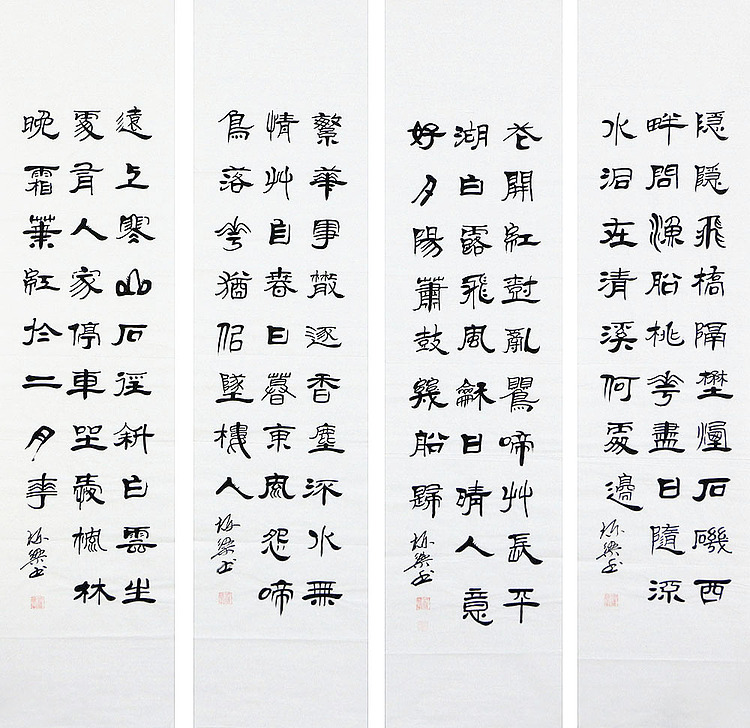 隱隱飛橋隔埜煙石磯西
畔問漁船桃花盡日隨流
水洞在清溪何處邊
花開紅樹亂鶯啼艸長平
湖白露飛風龢日晴人意
好夕陽簫鼓幾船歸
繁華事散逐香塵流水無
情艸自春日暮東風怨啼
鳥落花猶佀墜樓人
遠上寒山石徑斜白雲生
處有人家停車坐愛楓林
晚霜葉紅於二月花